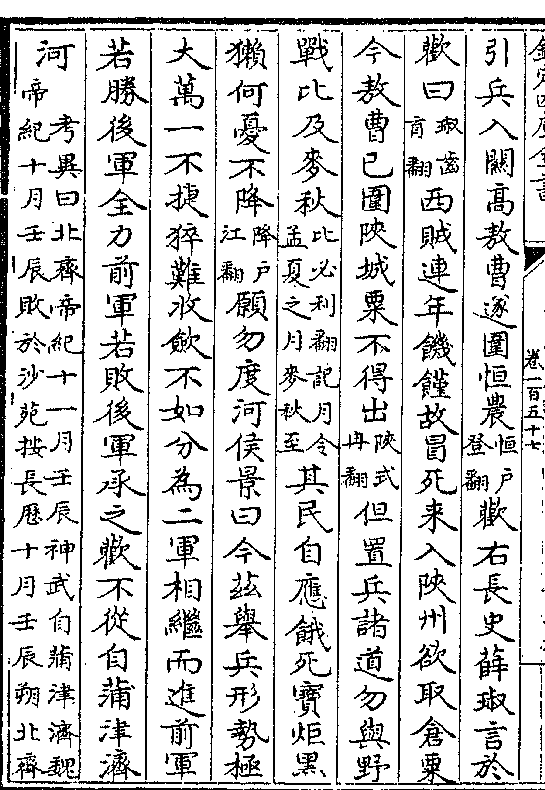 欽定四庫全書
卷一百五十七
引兵入關高敖曹遂圍恒農恒户登翻歡右長史薛琡言於
歡曰琡齒育翻西賊連年饑饉故冒死來入陝州欲取倉粟
今敖曹已圍陜城粟不得出陜式冉翻但置兵諸道勿與野
戰比及麥秋比必利翻記月令孟夏之月麥秋至其民自應餓死寶炬黒
獺何憂不降降户江翻願勿度河侯景曰今兹舉兵形勢極
大萬一不捷猝難收斂不如分為二軍相繼而進前軍
若勝後軍全力前軍若敗後軍承之歡不從自蒲津濟
河考異曰北齊帝紀十一月壬辰神武自蒲津濟魏帝紀十月壬辰敗於沙苑按長歴十月壬辰朔北齊